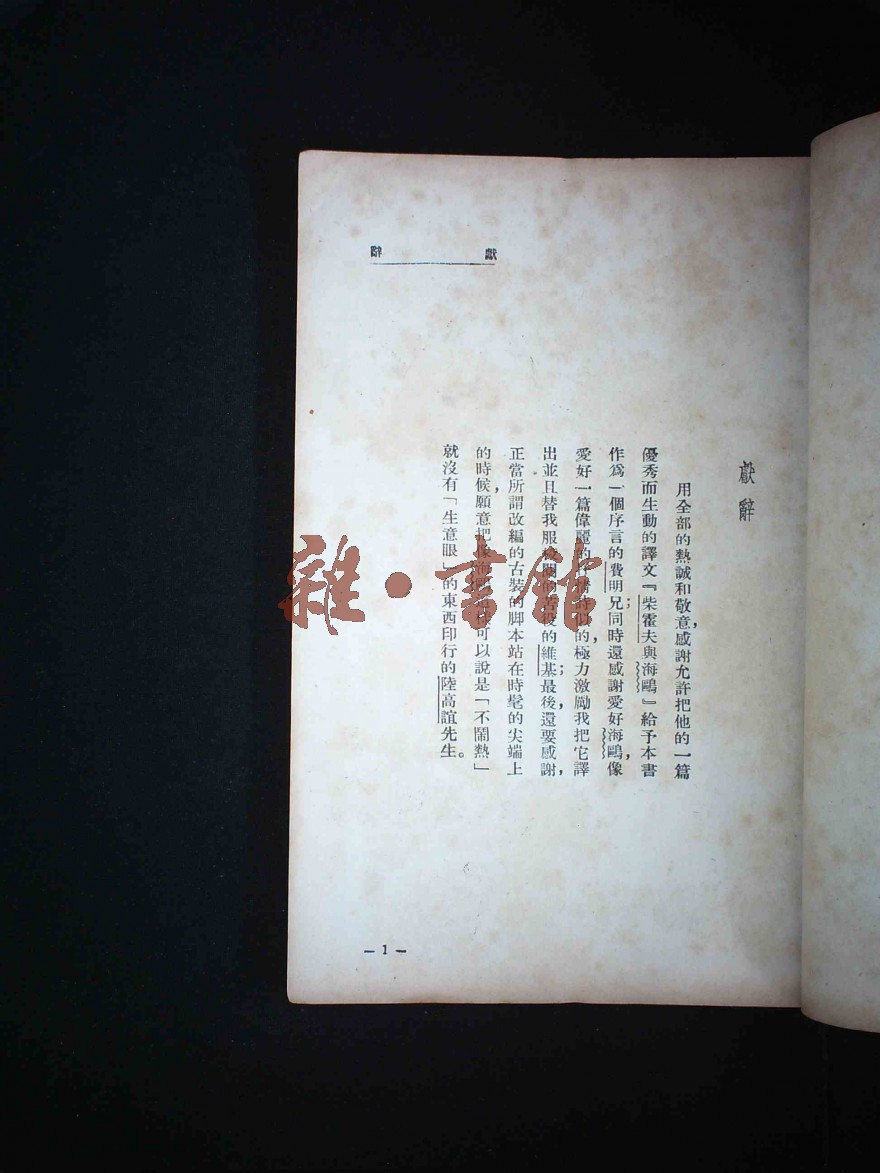 獻辭
獻辭
用全部的熱誠和敬意，感謝允許把他的一篇
優秀而生動的譯文『柴霍夫與海鷗』給予本書
作爲一個序言的費明兄；同時還感謝愛好海鷗，像
愛好一篇偉麗的詩似的，極力激勵我把它譯
出並且替我服的維基；最後，還要感謝，
正當所謂改編的古裝的脚本站在時髦的尖端上
的時候，願意把像海可以說是「不鬧熱」
就沒有「生意眼」的東西印行的陸高誼先生。
— 1 —
雜·書館